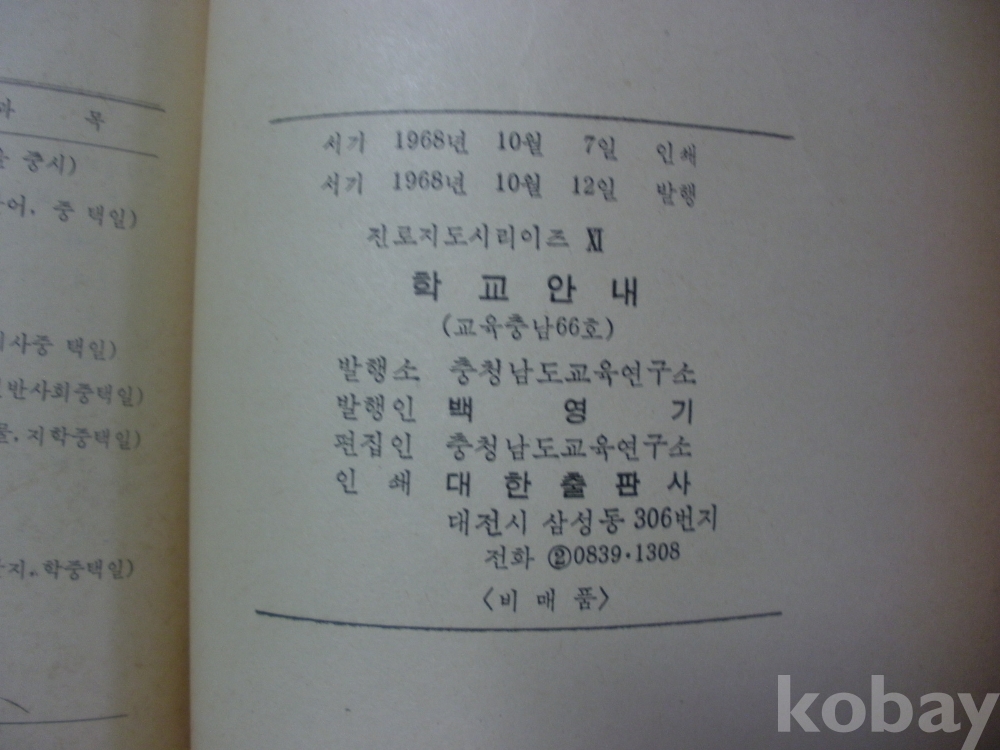 목
중시)
어. 중 택일)
사중 택일)
반사회중택일)
물. 지학중택일)
지. 학중택일)
서기 1968년 10월 7일 인쇄
서기 1968년 10월 12일 발행
진로지도시리이즈 XI
학교안내
(교육충남66호)
발행소 충청남도교육연구소
발행인 백영기
편집인 충청남도교육연구소
인쇄 대한출판사
대전시 삼성동 306번지
전화 ②0839·1308
〈비매품〉
kobay